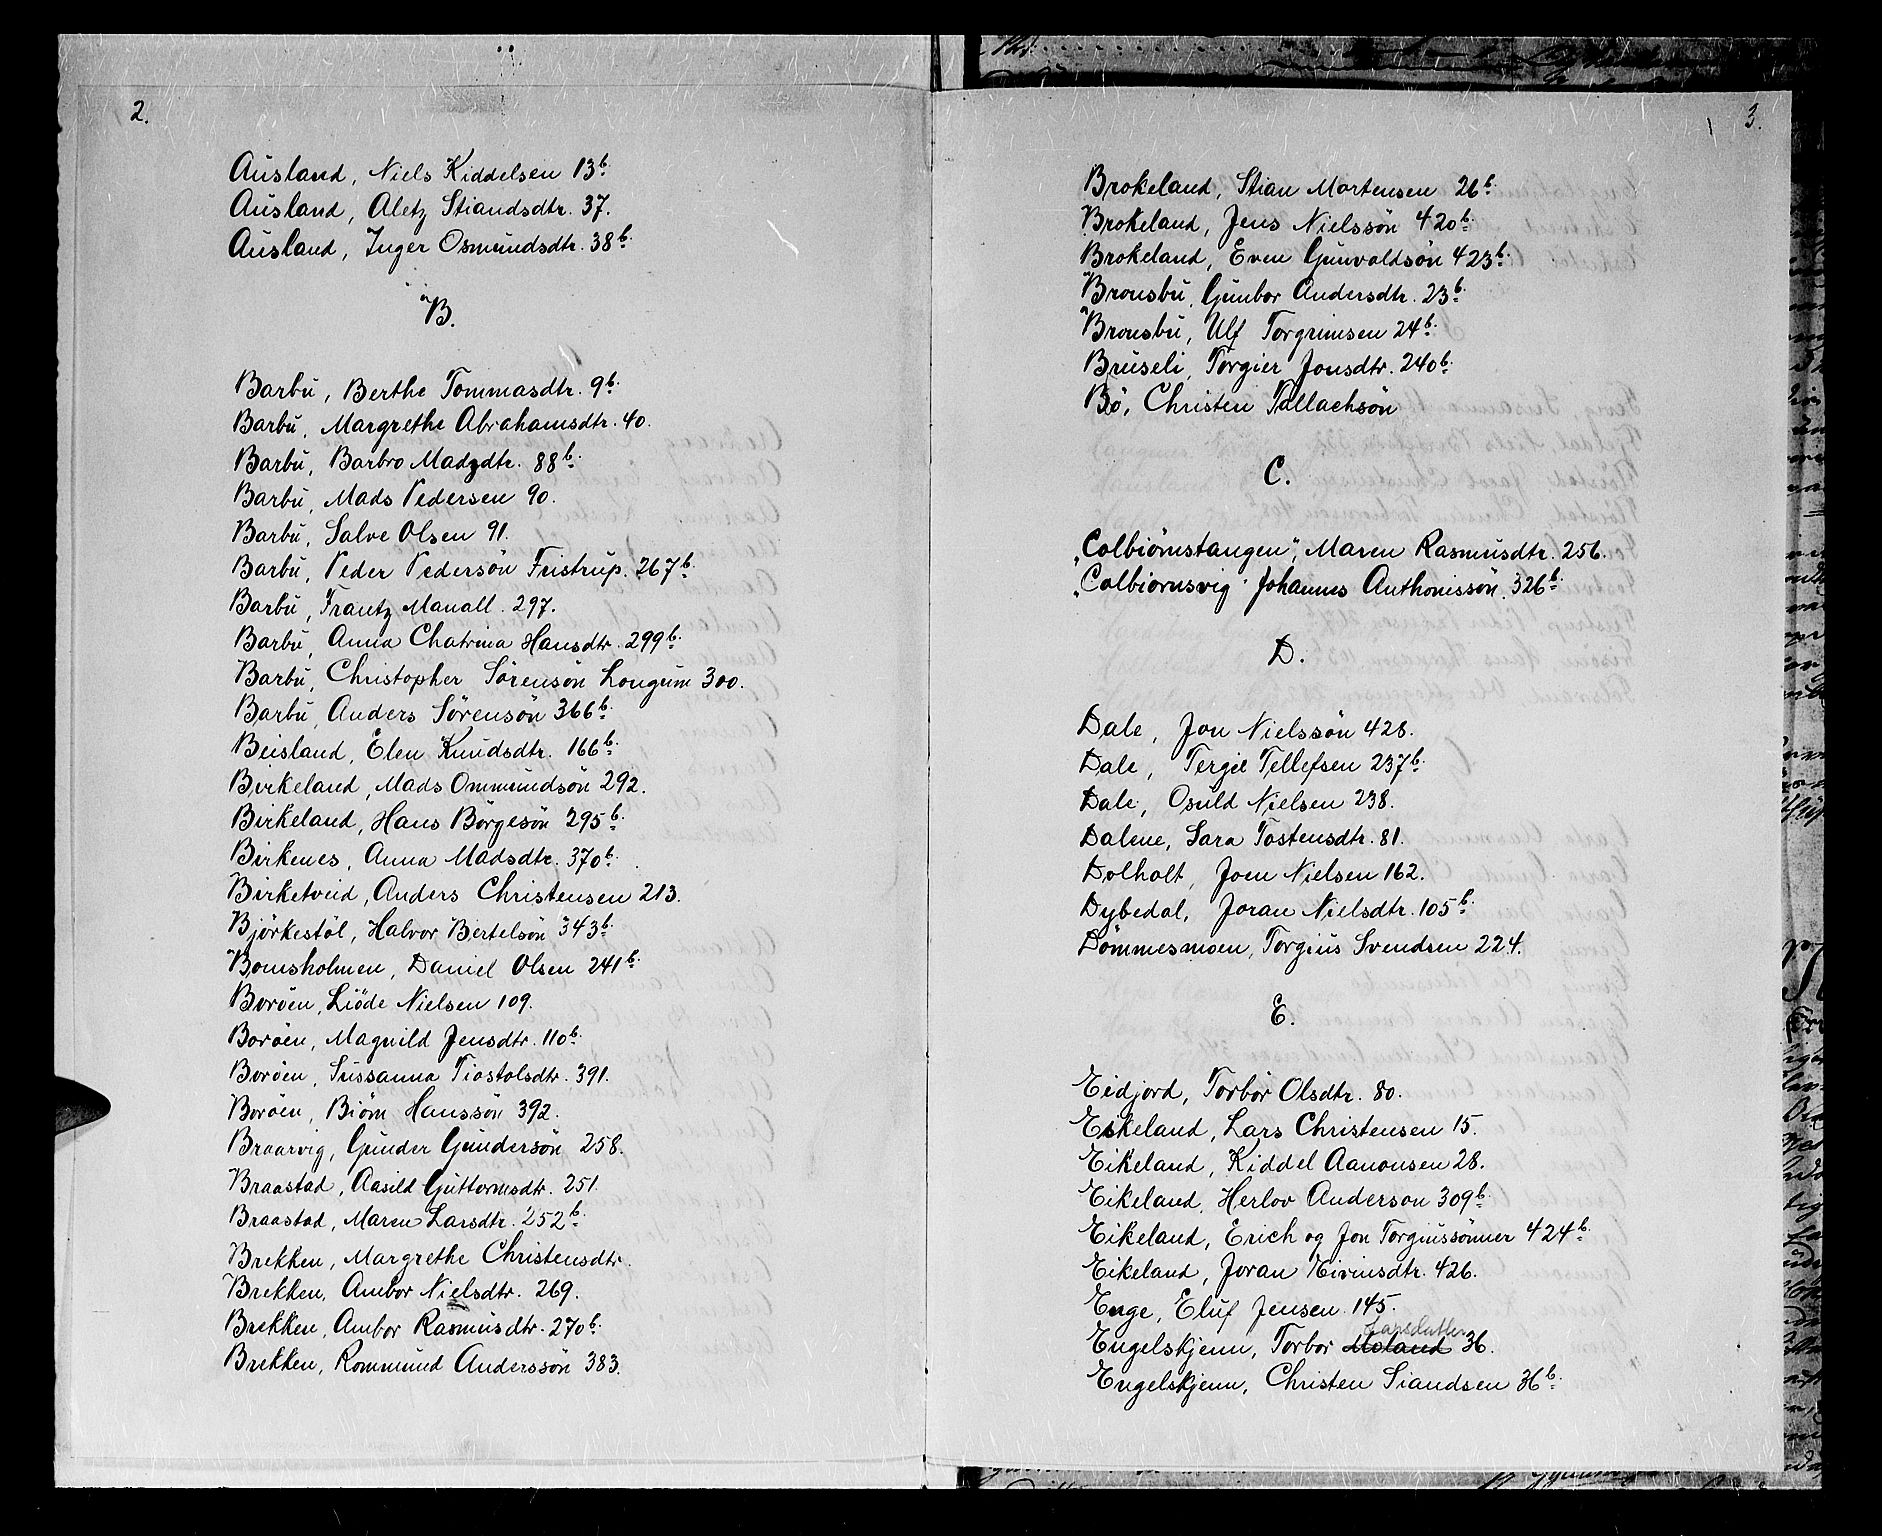 2.
Ausland, Niels Kiddelsen 13b.
Ausland, Aletz Stiandsdtr. 37.
Ausland, Inger Osmundsdtr. 38b.
B.
Barbu, Berthe Tommasdtr. 9b.
Barbu, Margrethe Abrahamsdtr. 40.
Barbu, Barbro Madzdtr. 88b.
Barbu, Mads Pedersen 90.
Barbu, Salve Olsen 91.
Barbu, Peder Pedersön Fristrup. 267b.
Barbu, Frantz Manall. 297.
Barbu, Anna Chatrina Hansdtr. 299b.
Barbu, Christopher Sörensön Longum 300.
Barbu, Anders Sörensön 366b.
Beisland, Elen Knudsdtr. 166b.
Birkeland, Mads Ommundsön 292.
Birkeland, Hans Börgesön 295b.
Birkenes, Anna Madsdtr. 370b.
Birketveid, Anders Christensen 213.
Björkestöl, Halvor Bertelsön 343b.
Bomsholmen, Daniel Olsen 241b.
Boröen, Liöde Nielsen 109.
Boröen, Magnild Jensdtr. 110b.
Boröen, Sussanna Tiostolsdtr. 391.
Boröen, Biörn Hanssön 392.
Braarvig, Gunder Gundersön 258.
Braastad, Aasild Guttormsdtr. 251.
Braastad, Maren Larsdtr. 252b.
Brekken, Margrethe Christensdtr.
Brekken, Ambor Nielsdtr. 269.
Brekken, Ambor Rasmusdtr. 270b.
Brekken, Rommund Anderssön 383.
3.
Brokeland, Stian Mortensen 26b.
Brokeland, Jens Nielssön 420b.
Brokeland, Even Gunvoldsön 423b.
Bronsbu, Gunbor Andersdtr. 23b.
Bronsbu, Ulf Torgrimsen 24b.
Bruseli, Torgier Jonsdtr. 240b.
Bö, Christen Tallachsön
C.
"Colbiörnstangen", Maren Rasmusdtr. 256.
"Colbiornsvig" Johannes Anthonissön. 326b.
D.
Dale, Jon Nielssön 428.
Dale, Tergie Tellefsen 237b.
Dale, Osuld Nielsen 238.
Dalene, Sara Tostensdtr. 81.
Dolholt, Joen Nielsen 162.
Dybedal, Joran Nielsdtr. 105b.
Dömmesmoen, Torgius Svendsen 224.
E.
Eidjord, Torbör Olsdtr. 80.
Eikeland, Lars Christensen 15.
Eikeland, Kiddel Aanonsen 28.
Eikeland, Herlov Anderson 309b.
Eikeland, Erich og Jon Torgiussönner 424b.
Eikeland, Joran Eivinsdtr. 426.
Enge, Eluf Jensen 145.
Larsdatter
Engelskjenn, Torbor Moland 36.
Engelskjenn, Christen Siandsen 36b.